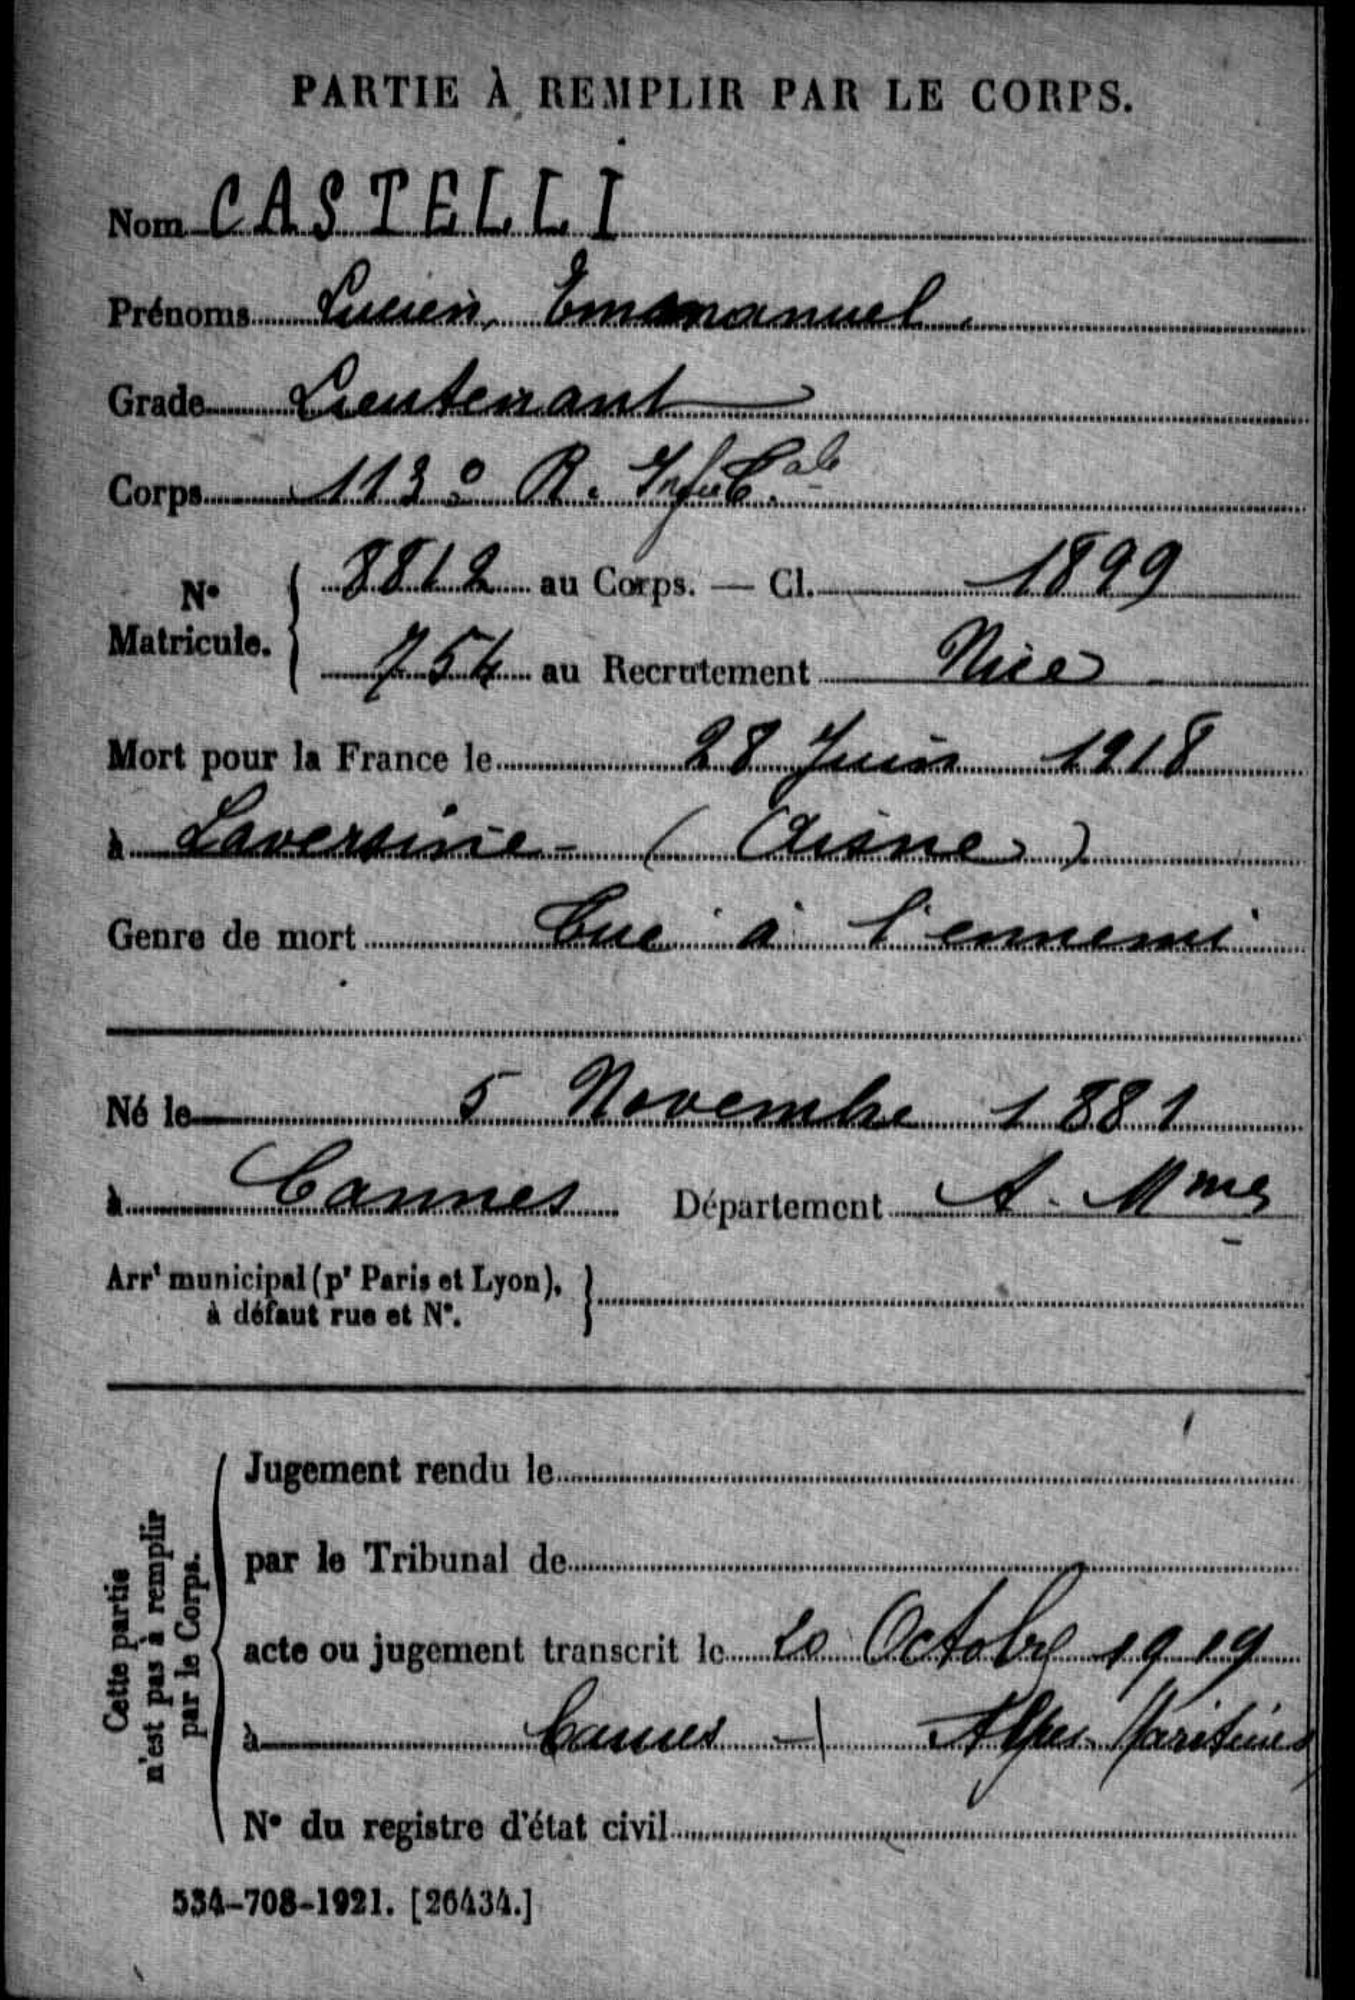 PARTIE À REMPLIR PAR LE CORPS.
Nom CASTELLI
Prénoms Lucien, Emmanuel.
Grade Lieutenant
Corps 113e R. Inf.
N° Matricule. 8812 au Corps. — Cl. 1899
754 au Recrutement Nice
Mort pour la France le 28 Juin 1918
à Laversine - (Aisne)
Genre de mort Tué à l'ennemi
Né le 5 Novembre 1881
à Cannes Département A. Mmes
Arrt municipal (pr Paris et Lyon), à défaut rue et N°.
Cette partie n'est pas à remplir par le Corps.
Jugement rendu le
par le Tribunal de
acte ou jugement transcrit le 20 Octobre 1919
à Cannes - Alpes Maritimes
N° du registre d'état civil
534-708-1921. [26434.]